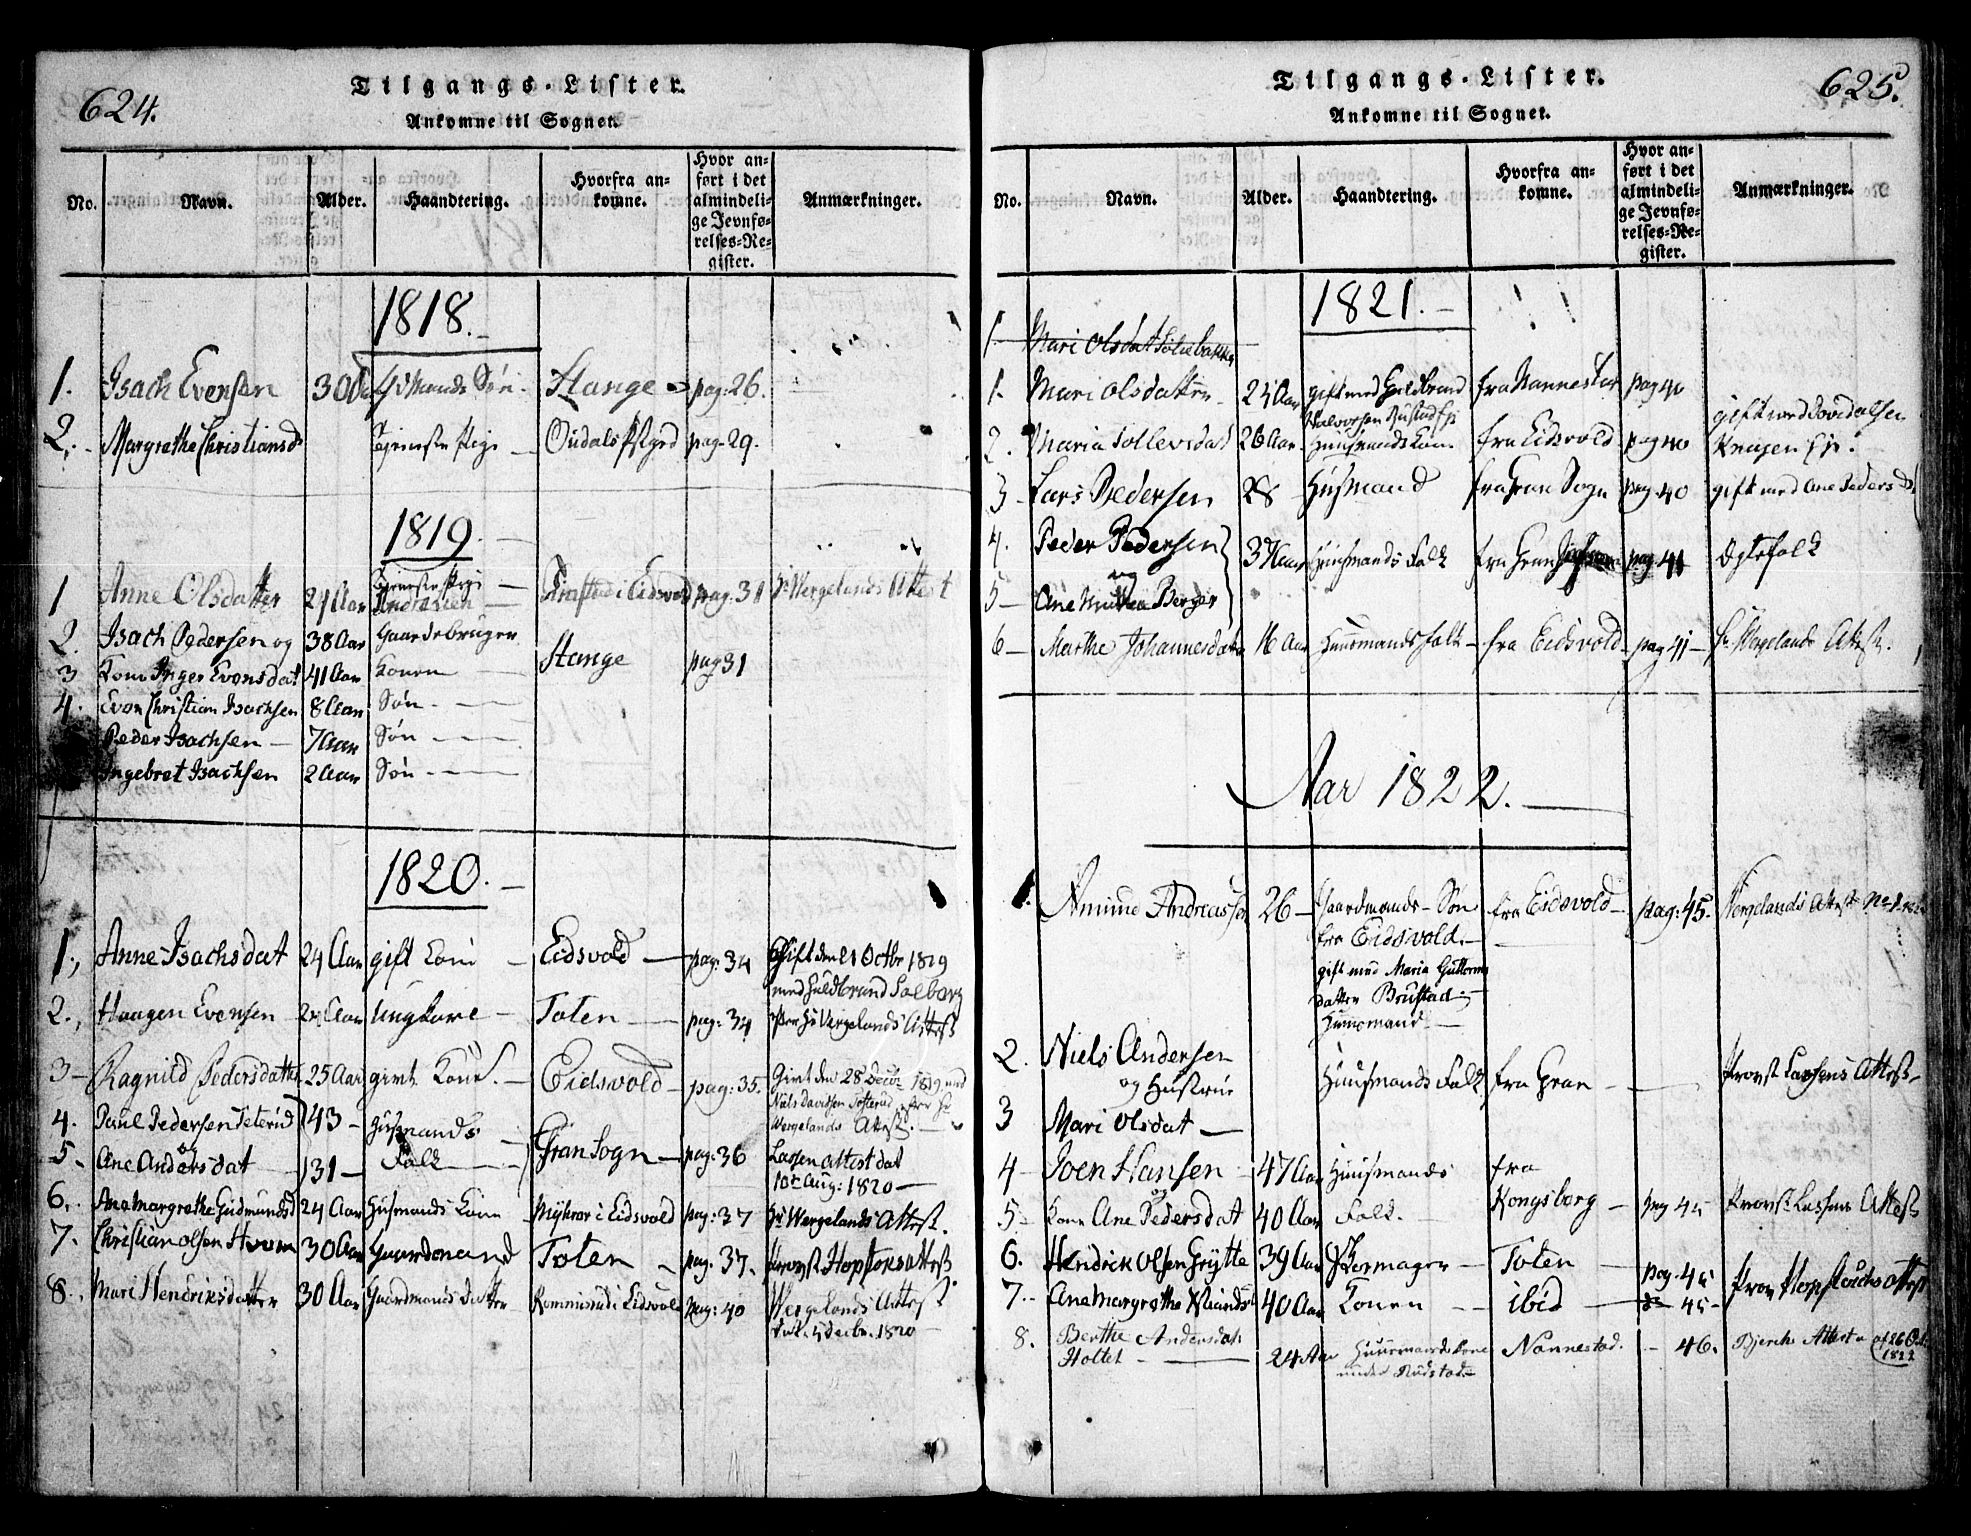 624.
Tilgangs-Lister.
Ankomne til Sognet.
No.
Navn.
Alder.
Haandtering.
Hvorfra an=
komne.
Hvor an=
ført i det
almindeli=
ge Jevnfø=
relses=Re=
gister.
Anmærkninger.
1818.
1. Isach Evensen 30 Mands Søn Stange pag: 26.
2. Margrethe Christiansd Tjeneste Pige Oudals pag. 29.
1819.
1 Anne Olsdatter 24 Aar Tjeneste Pige i Eidsvold pag: 31 Hr Vergelands Attest
2. Isach Pedersen og 38 Aar Gaardebruger Stange pag 31
3 Kone Inger Evensdat 41 Aar Konen
4. Even Christian Isachsen 8 Aar Søn
Peder Isachsen 7 Aar Søn
Ingebret Isachsen 2 Aar Søn
1820.
1, Anne Isachsdat 24 Aar gift Kone Eidsvold pag: 34 Gift den 21 Octbr 1819
med Guldbrand Solberg
2., Haagen Evensen Aar Ungkarl Toten pag: 34 Hr Vergelands Attest
3 Ragnild Pedersdatter 25 Aar givt Kone. Eidsvold pag: 35. Givt den 28 Decbr 1819 med
Niels Davidsen efter Hr
Vergelands Attest.
4. Paul Pedersen Teterud 43 Husmands
og
5. Ane Andersdat 31 Falk Gran Sogn pag: 36 Lassen Attest dat
10de Aug: 1820
6. Ane Margrethe Gudmundsd 24 Aar Husmands Kone Myhrer i Eidsvold pag: 37 Hr Vergelands Attest.
7. Christian Olsen 30 Aar Gaardmand Toten pag. 37. Provst Hopstoks Attest
8. Mari Hendriksdatter 30 Aar Gaardmands Datter i Eidsvold pag: 40 Vergelands Attest
5 Decbr. 1820
625.
Tilgangs-Lister.
Ankomne til Sognet.
No.
Navn.
Alder.
Haandtering.
Hvorfra an=
komne.
Hvor an=
ført i det
almindeli=
ge Jevnfø=
relses=Re=
gister.
Anmærkninger.
1821.
1. Mari Olsdat
1. Mari Olsdatter Aar gift med Guldbrand fra Nannestad pag 40
Halvorsen Rustad
2. Maria Tollevsdat 26 Aar Huusmands Kone fra Eidsvold pag 40 gift med
3 Lars Pedersen 28 Husmand fra Gran Sogn pag. 40 gift med Ane Pedersd
4. Peder Pedersen 37 Aar Huusmands Falk fra Gran pag 41 Egtefolk
og
5 Ane
6 Marthe Johannesdatter 16 Aar Huusmandsfolk fra Eidsvold pag 41 Hr Vergelands Attest.
Aar 1822.
1. Amund Andreassen 26 Gaardmands Søn fra Eidsvold pag: 45. Vergelands Attest
fra Eidsvold.
gift med Maria Guttorms
datter Brustad
Huusmand
2. Niels Andersen
og Hustrue Huusmands Falk fra Gran Provst Lassens Attest
3 Mari Olsdat
4 Joen Hansen 47 Aar Huusmands fra
og
5 Kone Ane Pedersdat 40 Aar Falk. Kongsberg pag 45 Provst Lassens Attest
6. Hendrick Olsen Grytte 39 Aar Toten pag. 45
7. Ane Margrethe 40 Aar Konen ibid 45
8. Berthe Andersdat
Holtet 24 Aar Huusmands Kone Nannestad. 46. Bjerchs Attest af 26 Oct.
under Rustad 1822